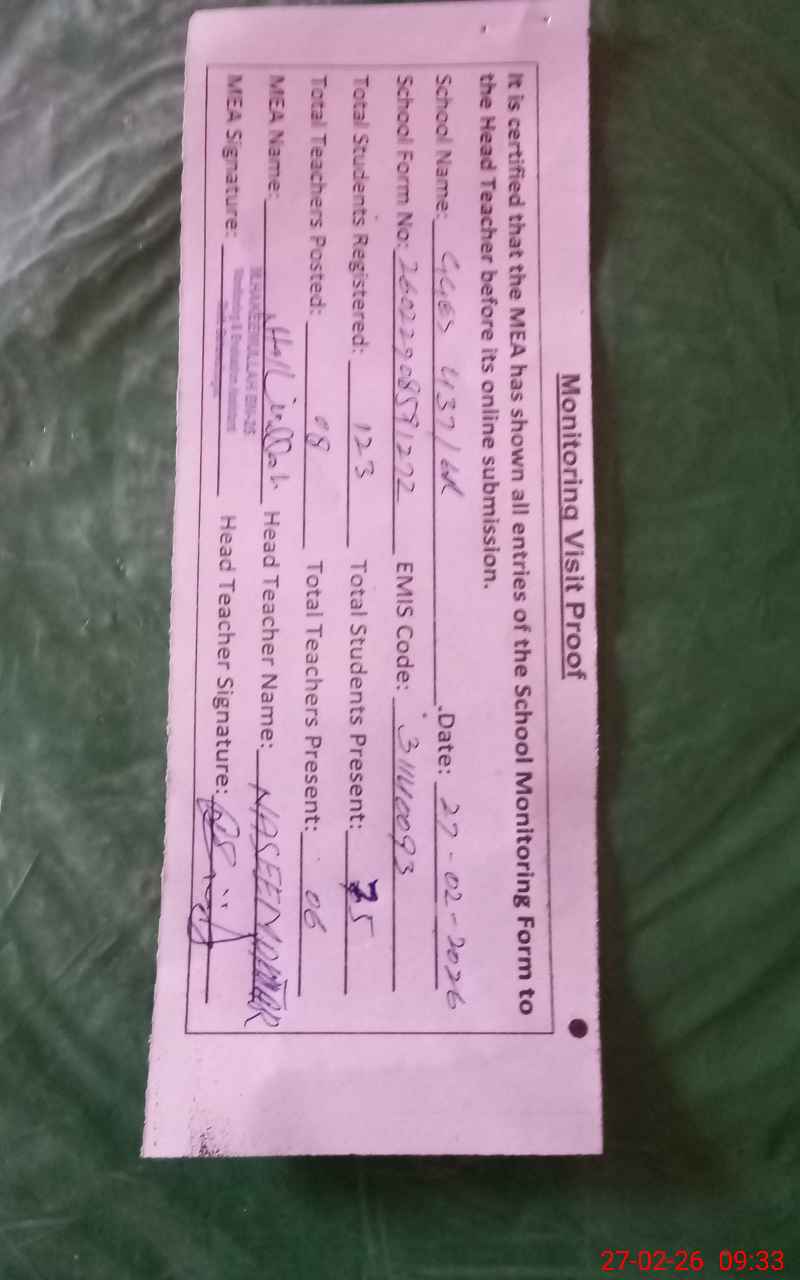 Monitoring Visit Proof
It is certified that the MEA has shown all entries of the School Monitoring Form to
the Head Teacher before its online submission.
School Name: GGES 437/ .Date: 27-02-2026
School Form No: EMIS Code: 31140093
Total Students Registered: 123 Total Students Present: 75
Total Teachers Posted: 08 Total Teachers Present: 06
MEA Name: Head Teacher Name: NASEEM AKHTAR
MEA Signature: Head Teacher Signature:
Monitoring & Evaluation Assistant
27-02-26 09:33